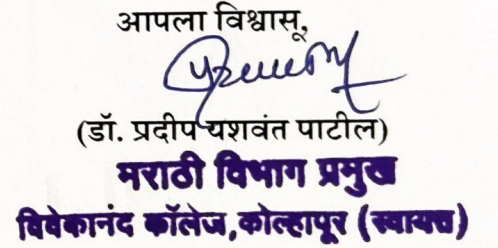 आपला विश्वासू,
(डॉ. प्रदीप यशवंत पाटील)
मराठी विभाग प्रमुख
विवेकानंद कॉलेज,कोल्हापूर (स्वायत्त)